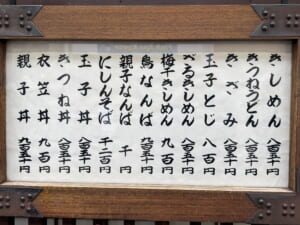 きしめん 八百五十円
きつねうどん 八百五十円
きざみ 八百五十円
玉子とじ 八百円
ざるきしめん 八百五十円
梅干きしめん 九百円
鳥なんば 九百五十円
親子なんば 千円
にしんそば 千二百円
玉子丼 八百五十円
きつね丼 八百五十円
衣笠丼 九百円
親子丼 九百五十円